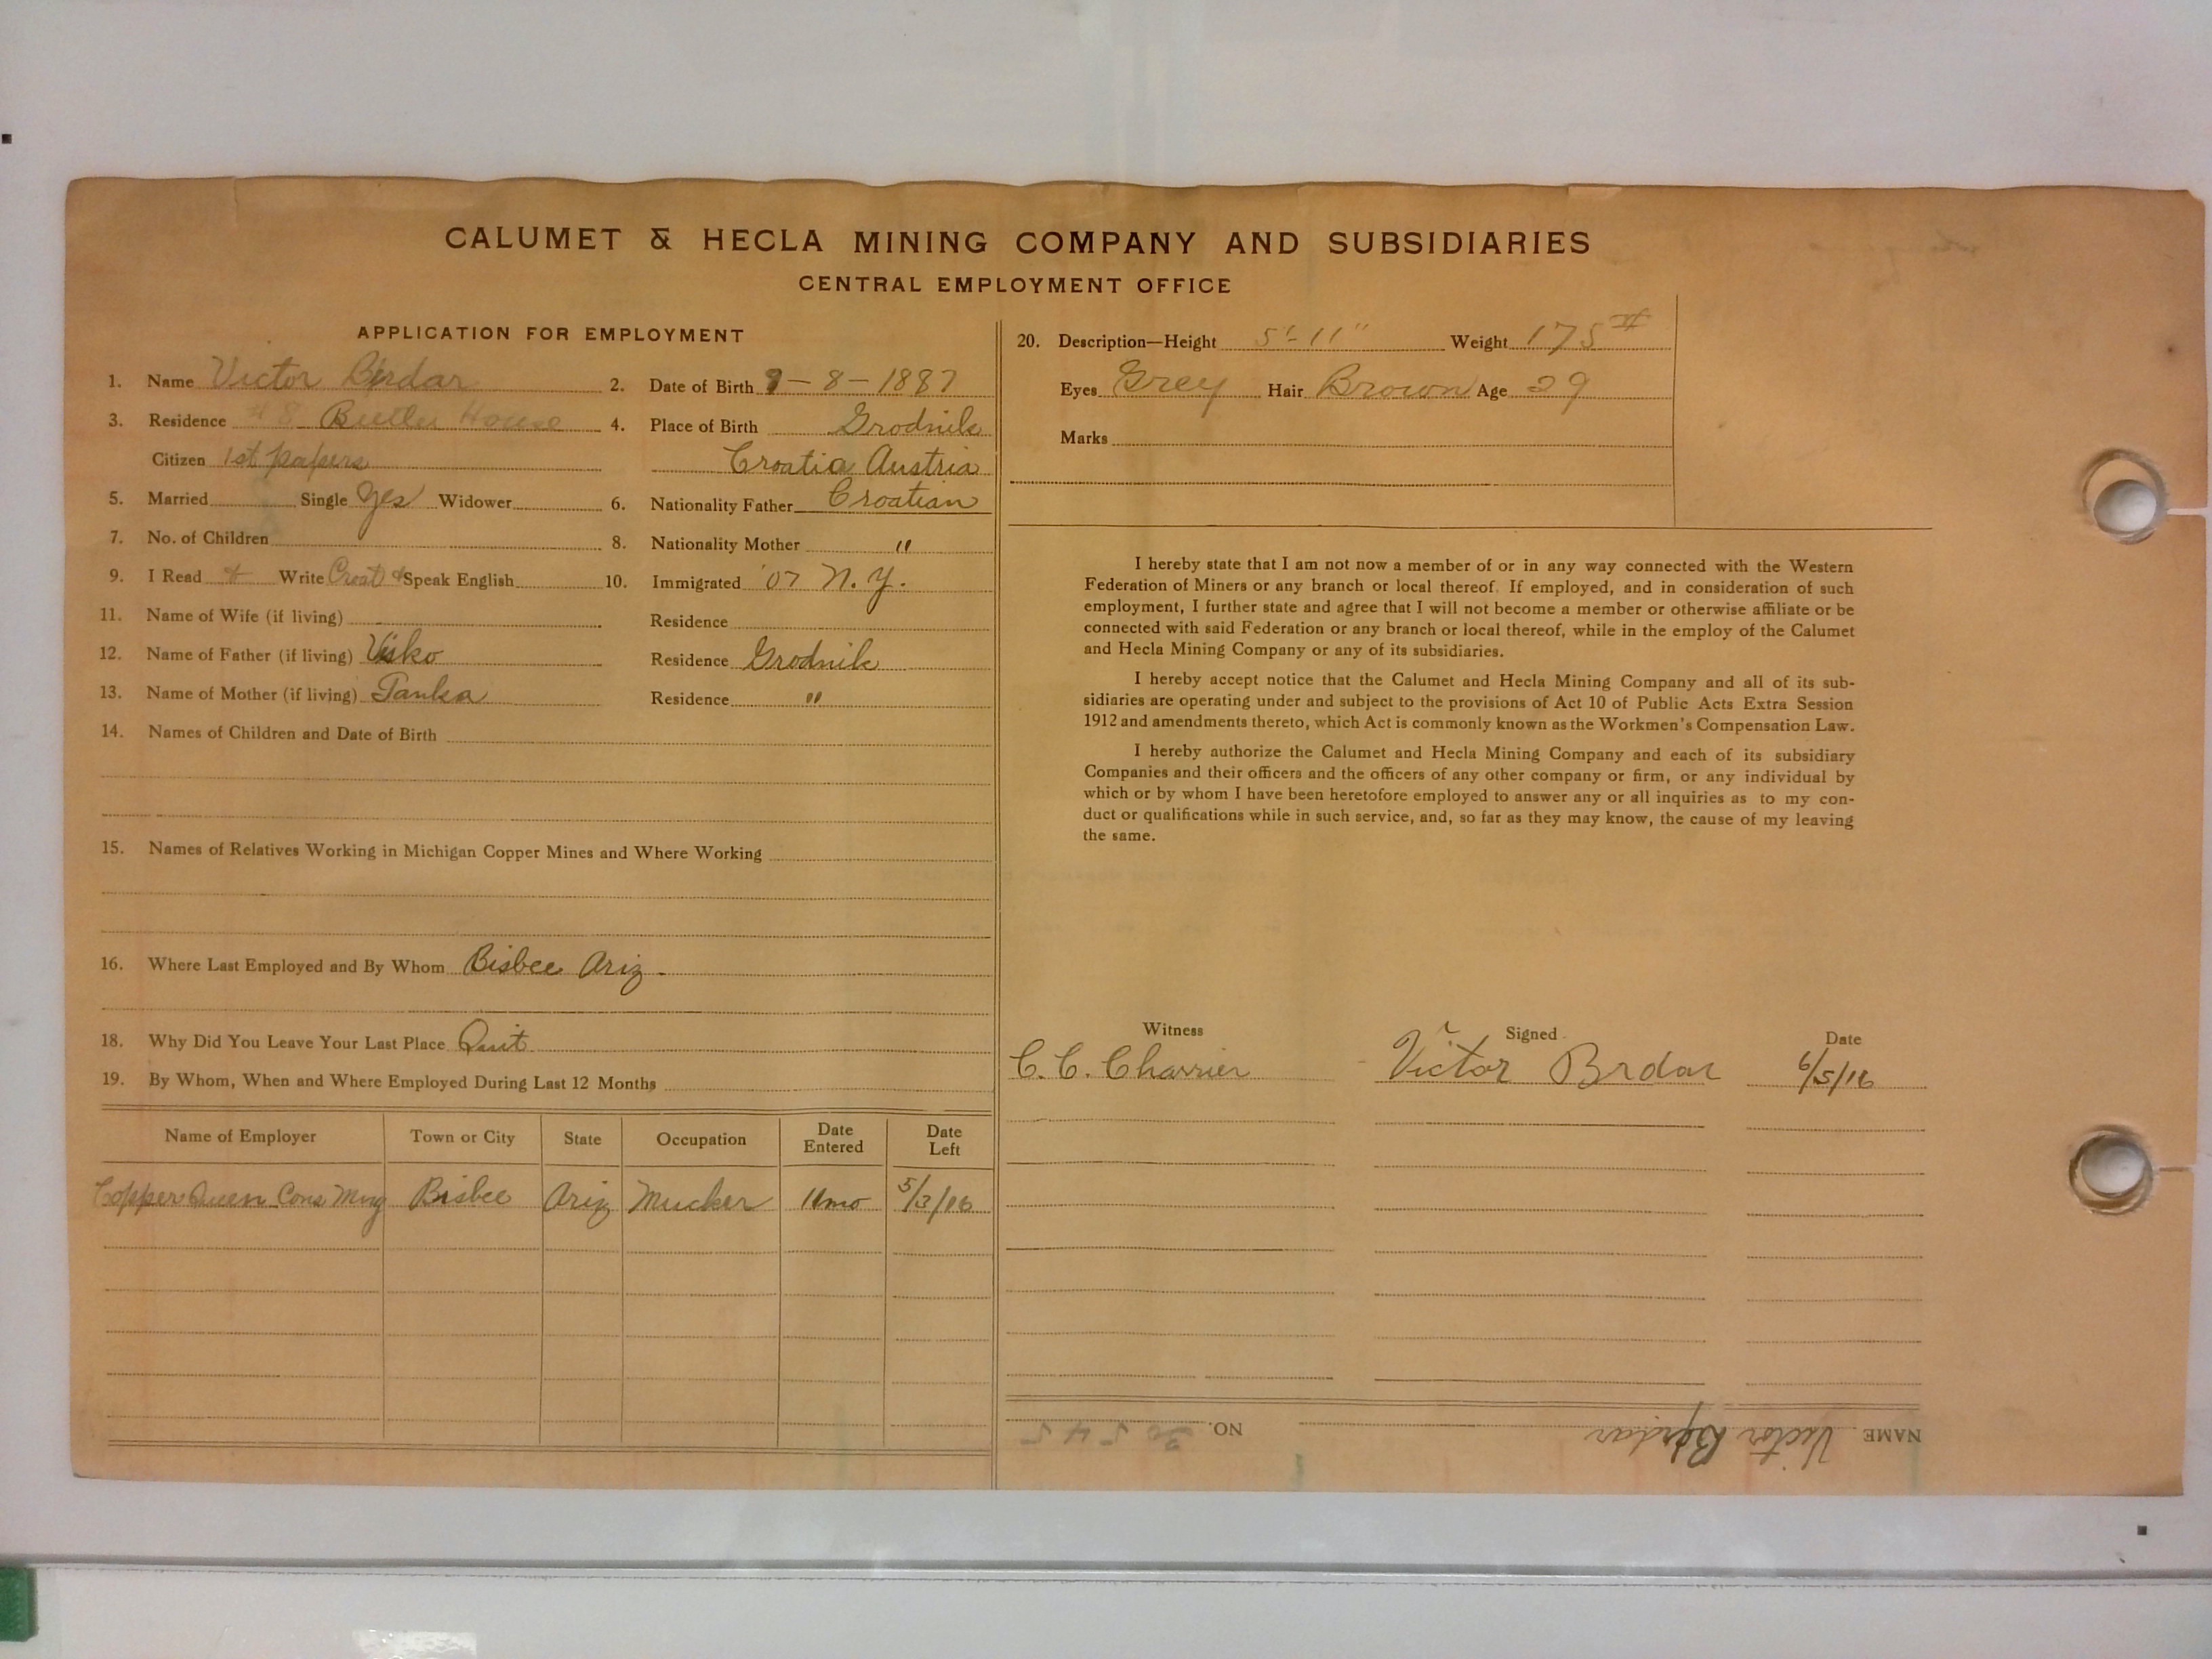 CALUMET & HECLA MINING COMPANY AND SUBSIDIARIES
CENTRAL EMPLOYMENT OFFICE
APPLICATION FOR EMPLOYMENT
1. Name Victor Brdar 2. Date of Birth 9-8-1887
3. Residence #8 Butler House 4. Place of Birth Grodnik
Citizen 1st papers Croatia Austria
5. Married Single Yes Widower 6. Nationality Father Croatian
7. No. of Children 8. Nationality Mother "
9. I Read & Write Croat & Speak English 10. Immigrated '07 N.Y.
11. Name of Wife (if living) Residence
12. Name of Father (if living) Visko Residence Grodnik
13. Name of Mother (if living) Tanka Residence "
14. Names of Children and Date of Birth
15. Names of Relatives Working in Michigan Copper Mines and Where Working
16. Where Last Employed and By Whom Bisbee Ariz.
18. Why Did You Leave Your Last Place Quit
19. By Whom, When and Where Employed During Last 12 Months
Name of Employer Town or City State Occupation Date Entered Date Left
Copper Queen Cons Mng Bisbee Ariz Mucker 11mo 5/3/16
20. Description—Height 5'-11" Weight 175#
Eyes Grey Hair Brown Age 29
Marks
I hereby state that I am not now a member of or in any way connected with the Western
Federation of Miners or any branch or local thereof. If employed, and in consideration of such
employment, I further state and agree that I will not become a member or otherwise affiliate or be
connected with said Federation or any branch or local thereof, while in the employ of the Calumet
and Hecla Mining Company or any of its subsidiaries.
I hereby accept notice that the Calumet and Hecla Mining Company and all of its sub-
sidiaries are operating under and subject to the provisions of Act 10 of Public Acts Extra Session
1912 and amendments thereto, which Act is commonly known as the Workmen's Compensation Law.
I hereby authorize the Calumet and Hecla Mining Company and each of its subsidiary
Companies and their officers and the officers of any other company or firm, or any individual by
which or by whom I have been heretofore employed to answer any or all inquiries as to my con-
duct or qualifications while in such service, and, so far as they may know, the cause of my leaving
the same.
Witness Signed Date
C. C. Charrier Victor Brdar 6/5/16
NAME Victor Brdar NO. 30545